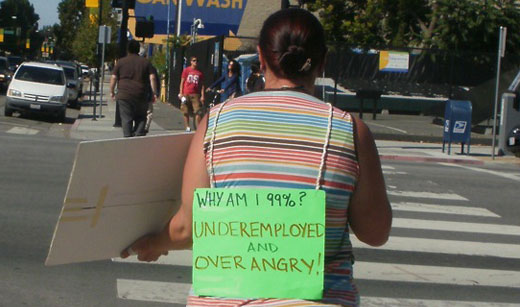 WASH
WHY AM I 99%?
UNDEREMPLOYED
AND
OVER ANGRY!